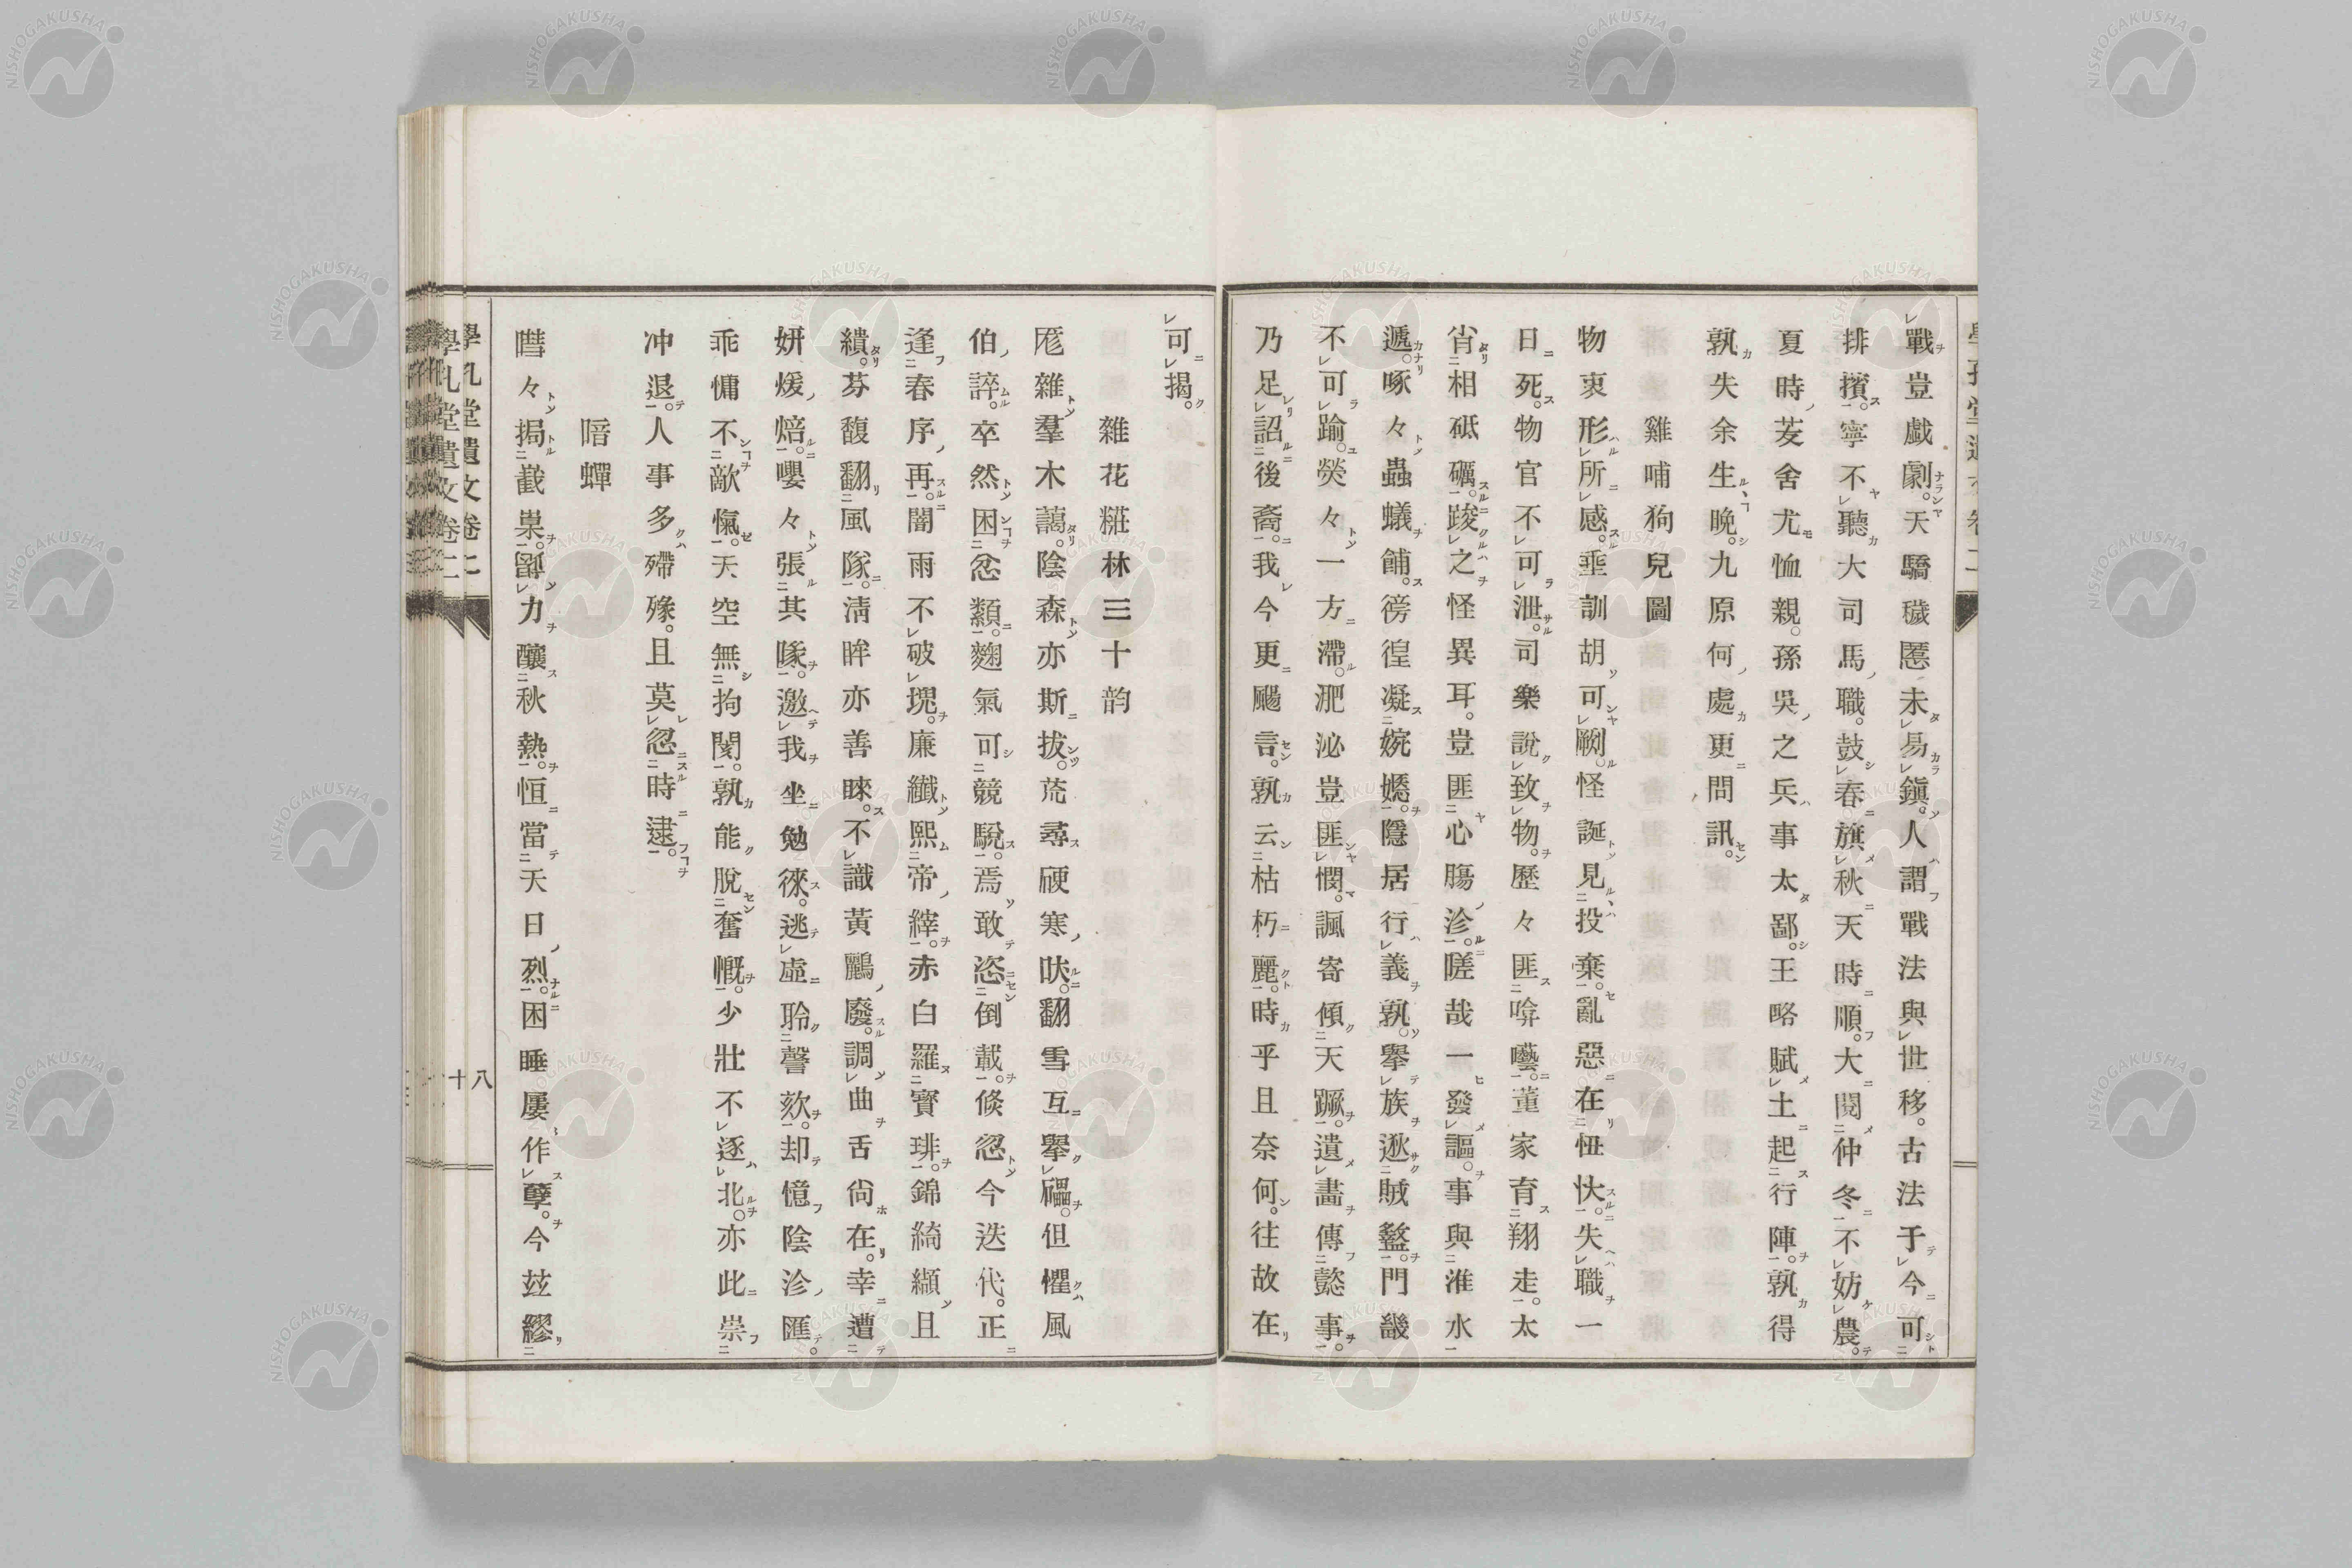 戰豈戲劇。天驕穢慝未易鎭。人謂戰法與世移。古法于今可
排擯。寧不聽大司馬職。鼓春旗秋天時順。大閱仲冬不妨農。
夏時茇舍尤恤親。孫吳之兵事太鄙。王略賦土起行陣。孰得
孰失余生晩。九原何處更問訊。
雞哺狗兒圖
物衷形所感。垂訓胡可劂。怪誕見投棄。亂惡在忸忕。失職一
日死。物官不可泄。司樂說致物。歷々匪噂囈。董家育翔走。太
省相砥礪。踆之怪異耳。豈匪心膓沴。嗟哉一發謳。事與淮水
遞。啄々蟲蟻餔。徬徨凝婉嫕。隱居行義孰。擧族逖賊盭。門畿
不可踰。熒々一方滯。淝泌豈匪憫。諷寄傾天蹶。遺畫傳懿事。
乃足詔後裔。我今更颺言。孰云枯朽麗。時乎且奈何。往故在
可揭。
雜花糚林三十韵
厖雜羣木藹。陰森亦斯拔。荒尋硬寒吠。翻雪互擧礧。但懼風
伯誶。卒然困忿纇。麴氣可競駾。焉敢恣倒載。倏忽今迭代。正
逢春序再。闇雨不破塊。廉纖熙帝縡。赤白羅寶琲。錦綺纈且
繢。芬馥翻風隊。淸眸亦善睞。不識黃鸝廢。調曲舌尙在。幸遭
妍煖焙。嚶々張其喙。邀我坐勉徠。逃虛聆謦欬。却憶陰沴匯。
乖慵不敵愾。天空無拘閡。孰能脫奮慨。少壯不逐北。亦此祟
冲退。人事多殢㱿。且莫忽時逮。
喑蟬
嘒々揭截杲。罶力釀秋熱。恒當天日烈。困睡屢作孽。今玆繆
學孔堂遺文卷二
八
十
NISHOGAKUSHA